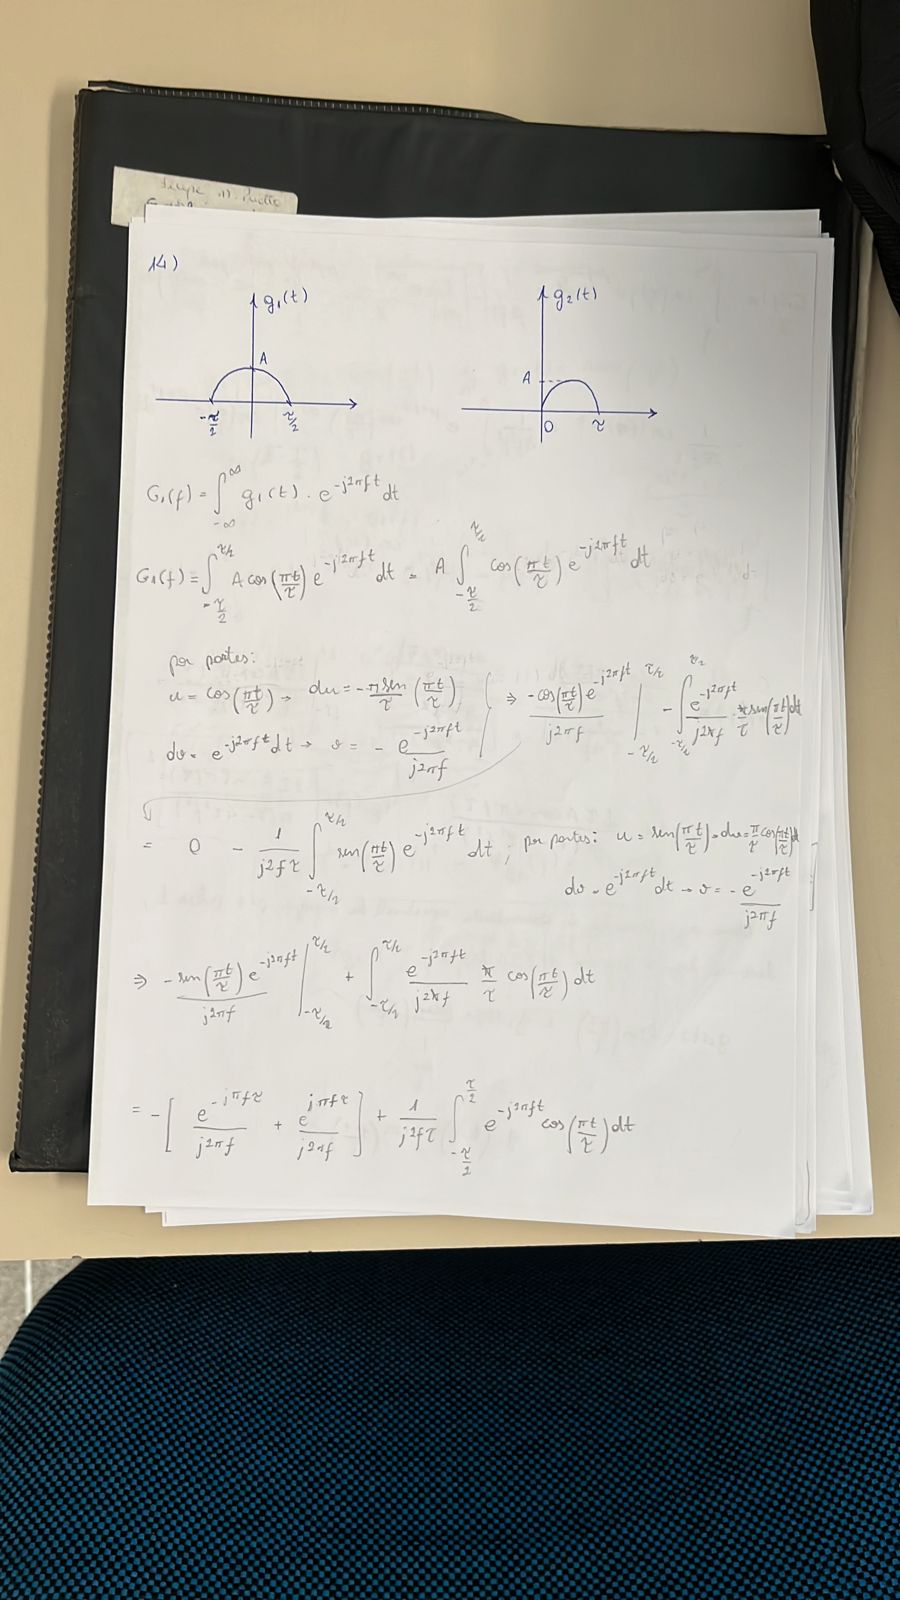 14)
g₁(t)
g₂(t)
A
A
-τ/2 τ/2
0 τ
G₁(f) = ∫_{-∞}^{∞} g₁(t) · e^{-j2πft} dt
G₁(f) = ∫_{-τ/2}^{τ/2} A cos(πt/τ) e^{-j2πft} dt = A ∫_{-τ/2}^{τ/2} cos(πt/τ) e^{-j2πft} dt
por partes:
u = cos(πt/τ) → du = -π/τ sen(πt/τ) ⇒ -cos(πt/τ) e^{-j2πft} / j2πf |_{-τ/2}^{τ/2} - ∫_{-τ/2}^{τ/2} e^{-j2πft} / j2πf · π/τ sen(πt/τ) dt
dv = e^{-j2πft} dt → v = - e^{-j2πft} / j2πf
= 0 - 1/j2fτ ∫_{-τ/2}^{τ/2} sen(πt/τ) e^{-j2πft} dt ; por partes: u = sen(πt/τ) → du = π/τ cos(πt/τ) dt
dv = e^{-j2πft} dt → v = - e^{-j2πft} / j2πf
⇒ - sen(πt/τ) e^{-j2πft} / j2πf |_{-τ/2}^{τ/2} + ∫_{-τ/2}^{τ/2} e^{-j2πft} / j2πf π/τ cos(πt/τ) dt
= -[ e^{-jπfτ} / j2πf + e^{jπfτ} / j2πf ] + 1/j2fτ ∫_{-τ/2}^{τ/2} e^{-j2πft} cos(πt/τ) dt